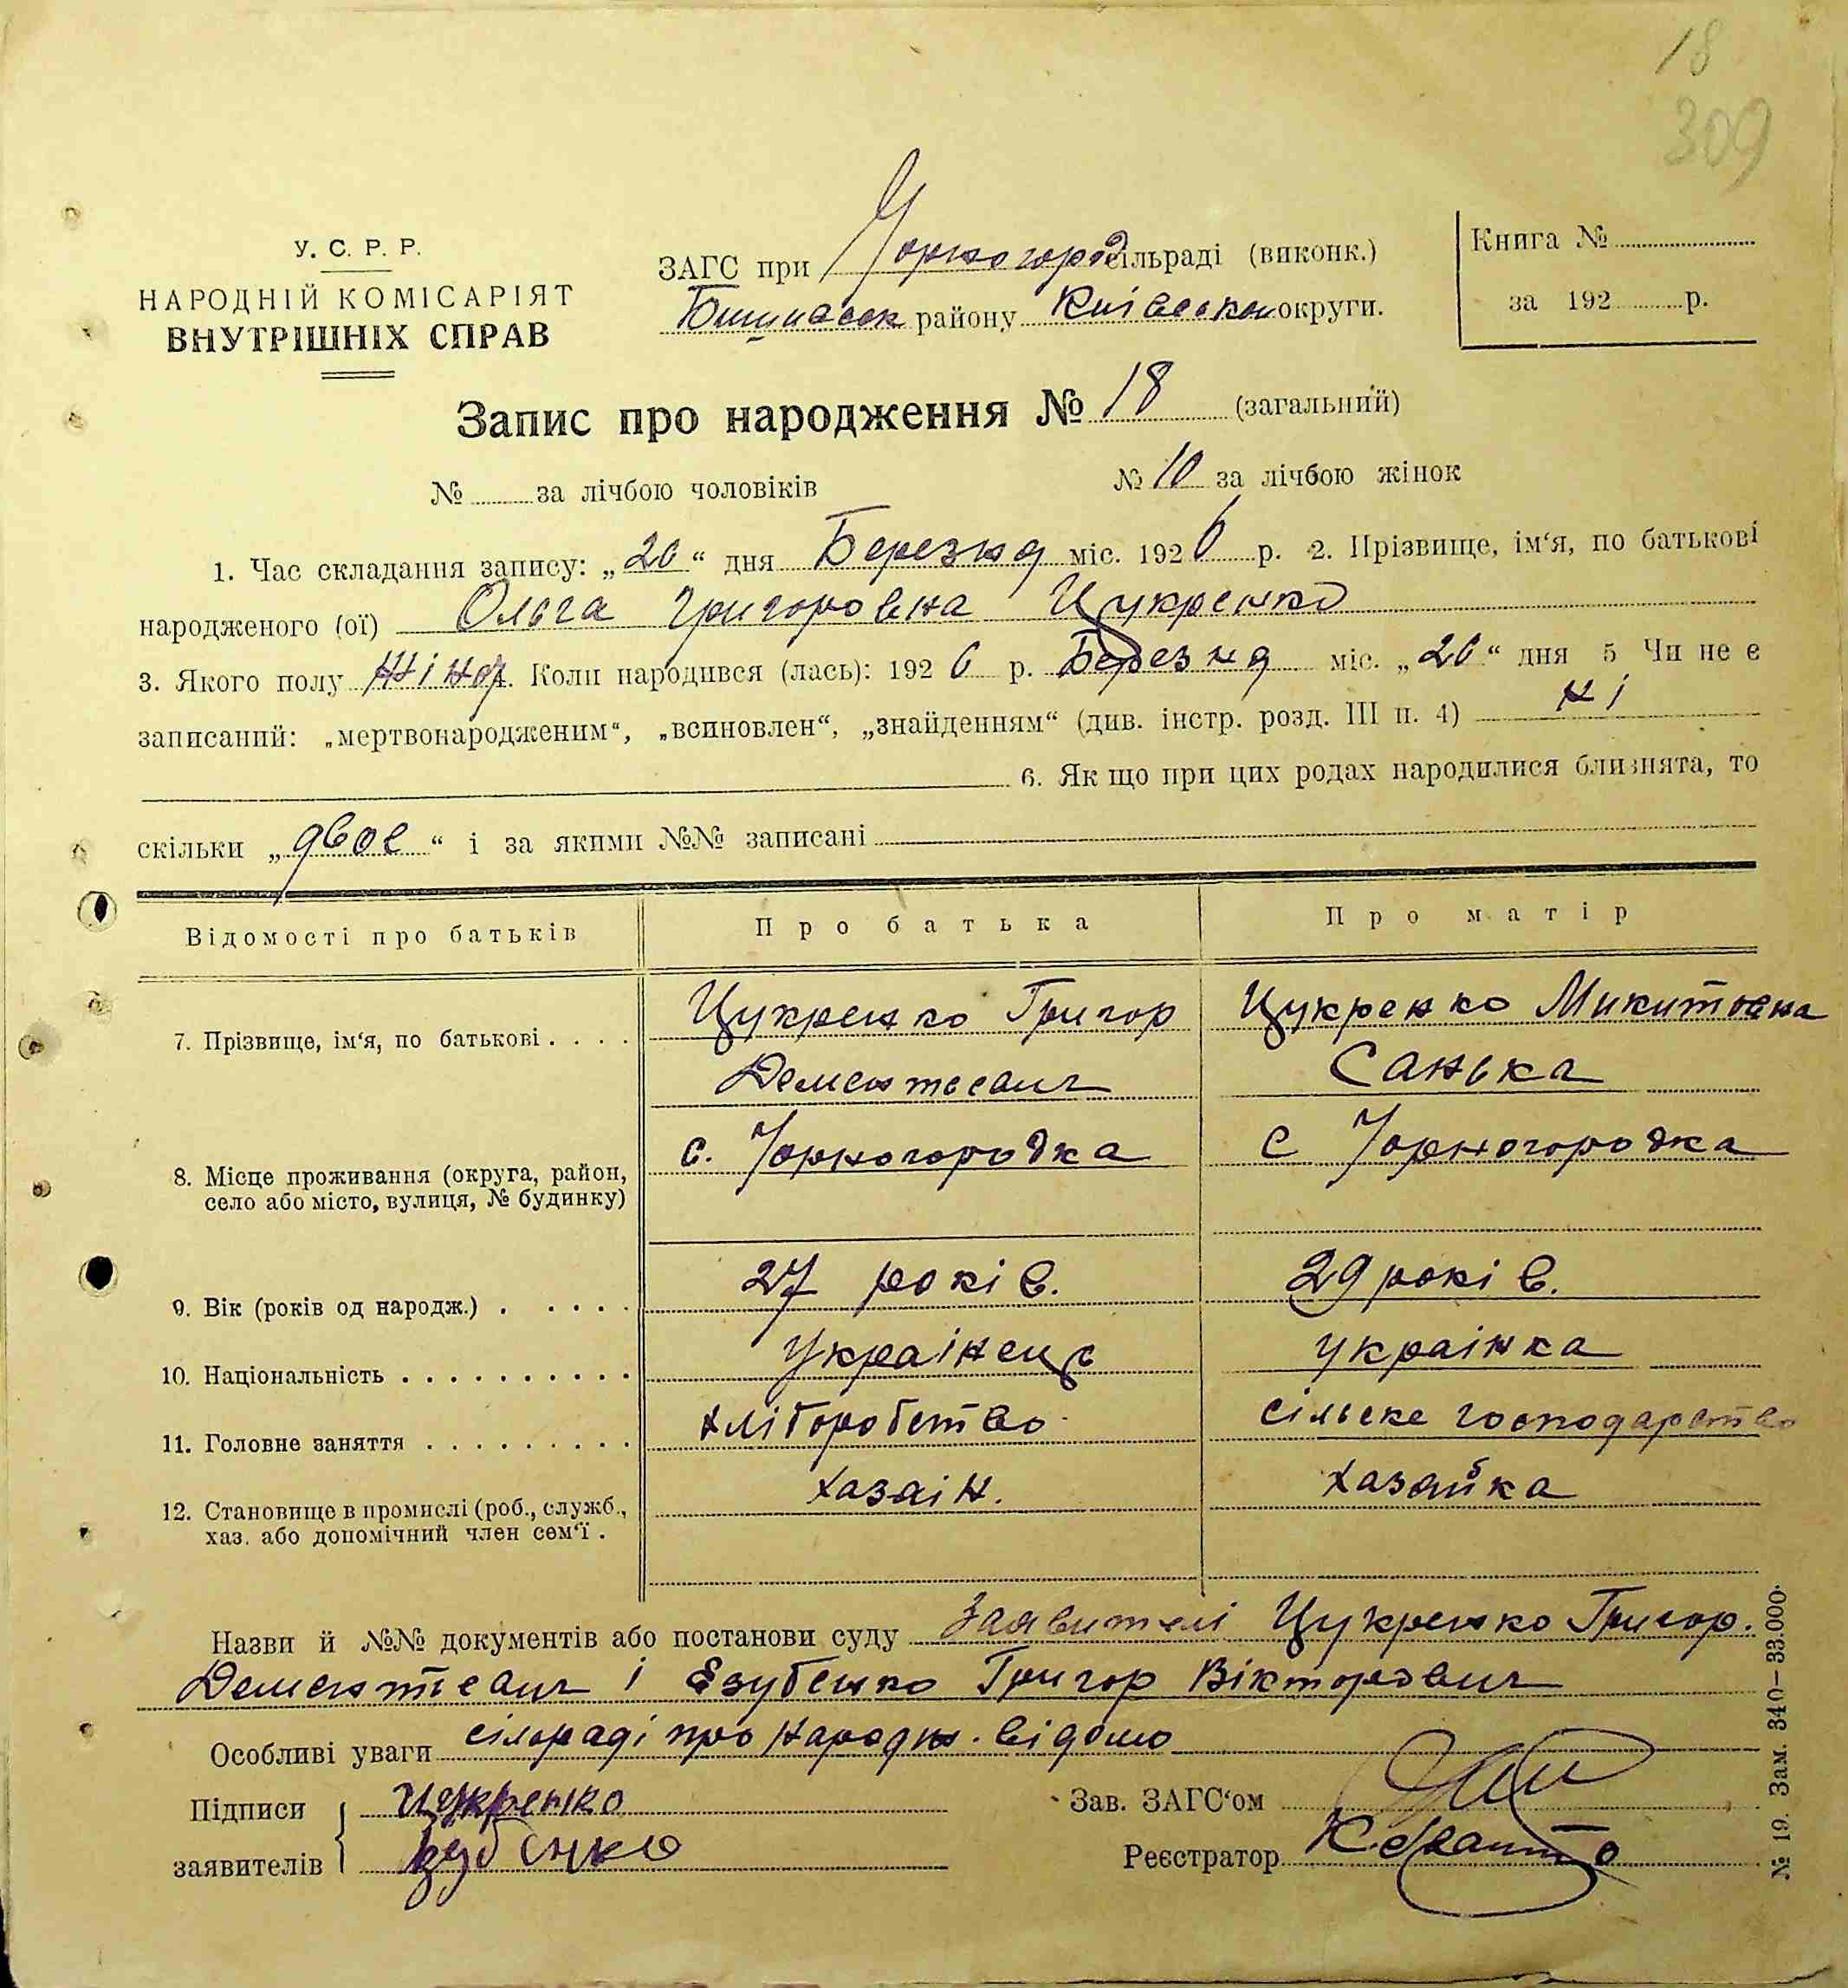 18
309
У. С. Р. Р.
НАРОДНІЙ КОМІСАРІЯТ
ВНУТРІШНІХ СПРАВ
ЗАГС при Чорногород сільраді (виконк.)
район у округи.
Книга №
за 192 р.
Запис про народження № 18 (загальний)
№ за лічбою чоловіків № 10 за лічбою жінок
1. Час складання запису: „20“ дня Березня міс. 1926 р. 2. Прізвище, ім‘я, по батькові
народженого (ої) Ольга Григоровна Цукренко
3. Якого полу Жіноч. Коли народився (лась): 1926 р. Березня міс. „20“ дня 5 Чи не є
записаний: „мертвонародженим“, „всиновлен“, „знайденням“ (див. інстр. розд. III п. 4) Ні
6. Як що при цих родах народилися близнята, то
скільки „двое“ і за якими №№ записані
Відомості про батьків Про батька Про матір
7. Прізвище, ім‘я, по батькові . . . . Цукренко Григор Цукренко Микитовна
Дементєвич Санька
8. Місце проживання (округа, район, с. Чорногородка с Чорногородка
село або місто, вулиця, № будинку)
9. Вік (років од народж.) . . . . . 27 років. 29 років.
10. Національність . . . . . . . . . . Українець українка
11. Головне заняття . . . . . . . . . хліборобство сільске господарство
12. Становище в промислі (роб., служб., хазаїн. хазайка
хаз. або допомічний член сем‘ї .
Назви й №№ документів або постанови суду Заявителі Цукренко Григор.
Дементєвич і Григор Вікторович
Особливі уваги сільраді про народж. відомо
Підписи Цукренко Зав. ЗАГС‘ом
заявителів Реєстратор
№ 19. Зам. 340—33.000.